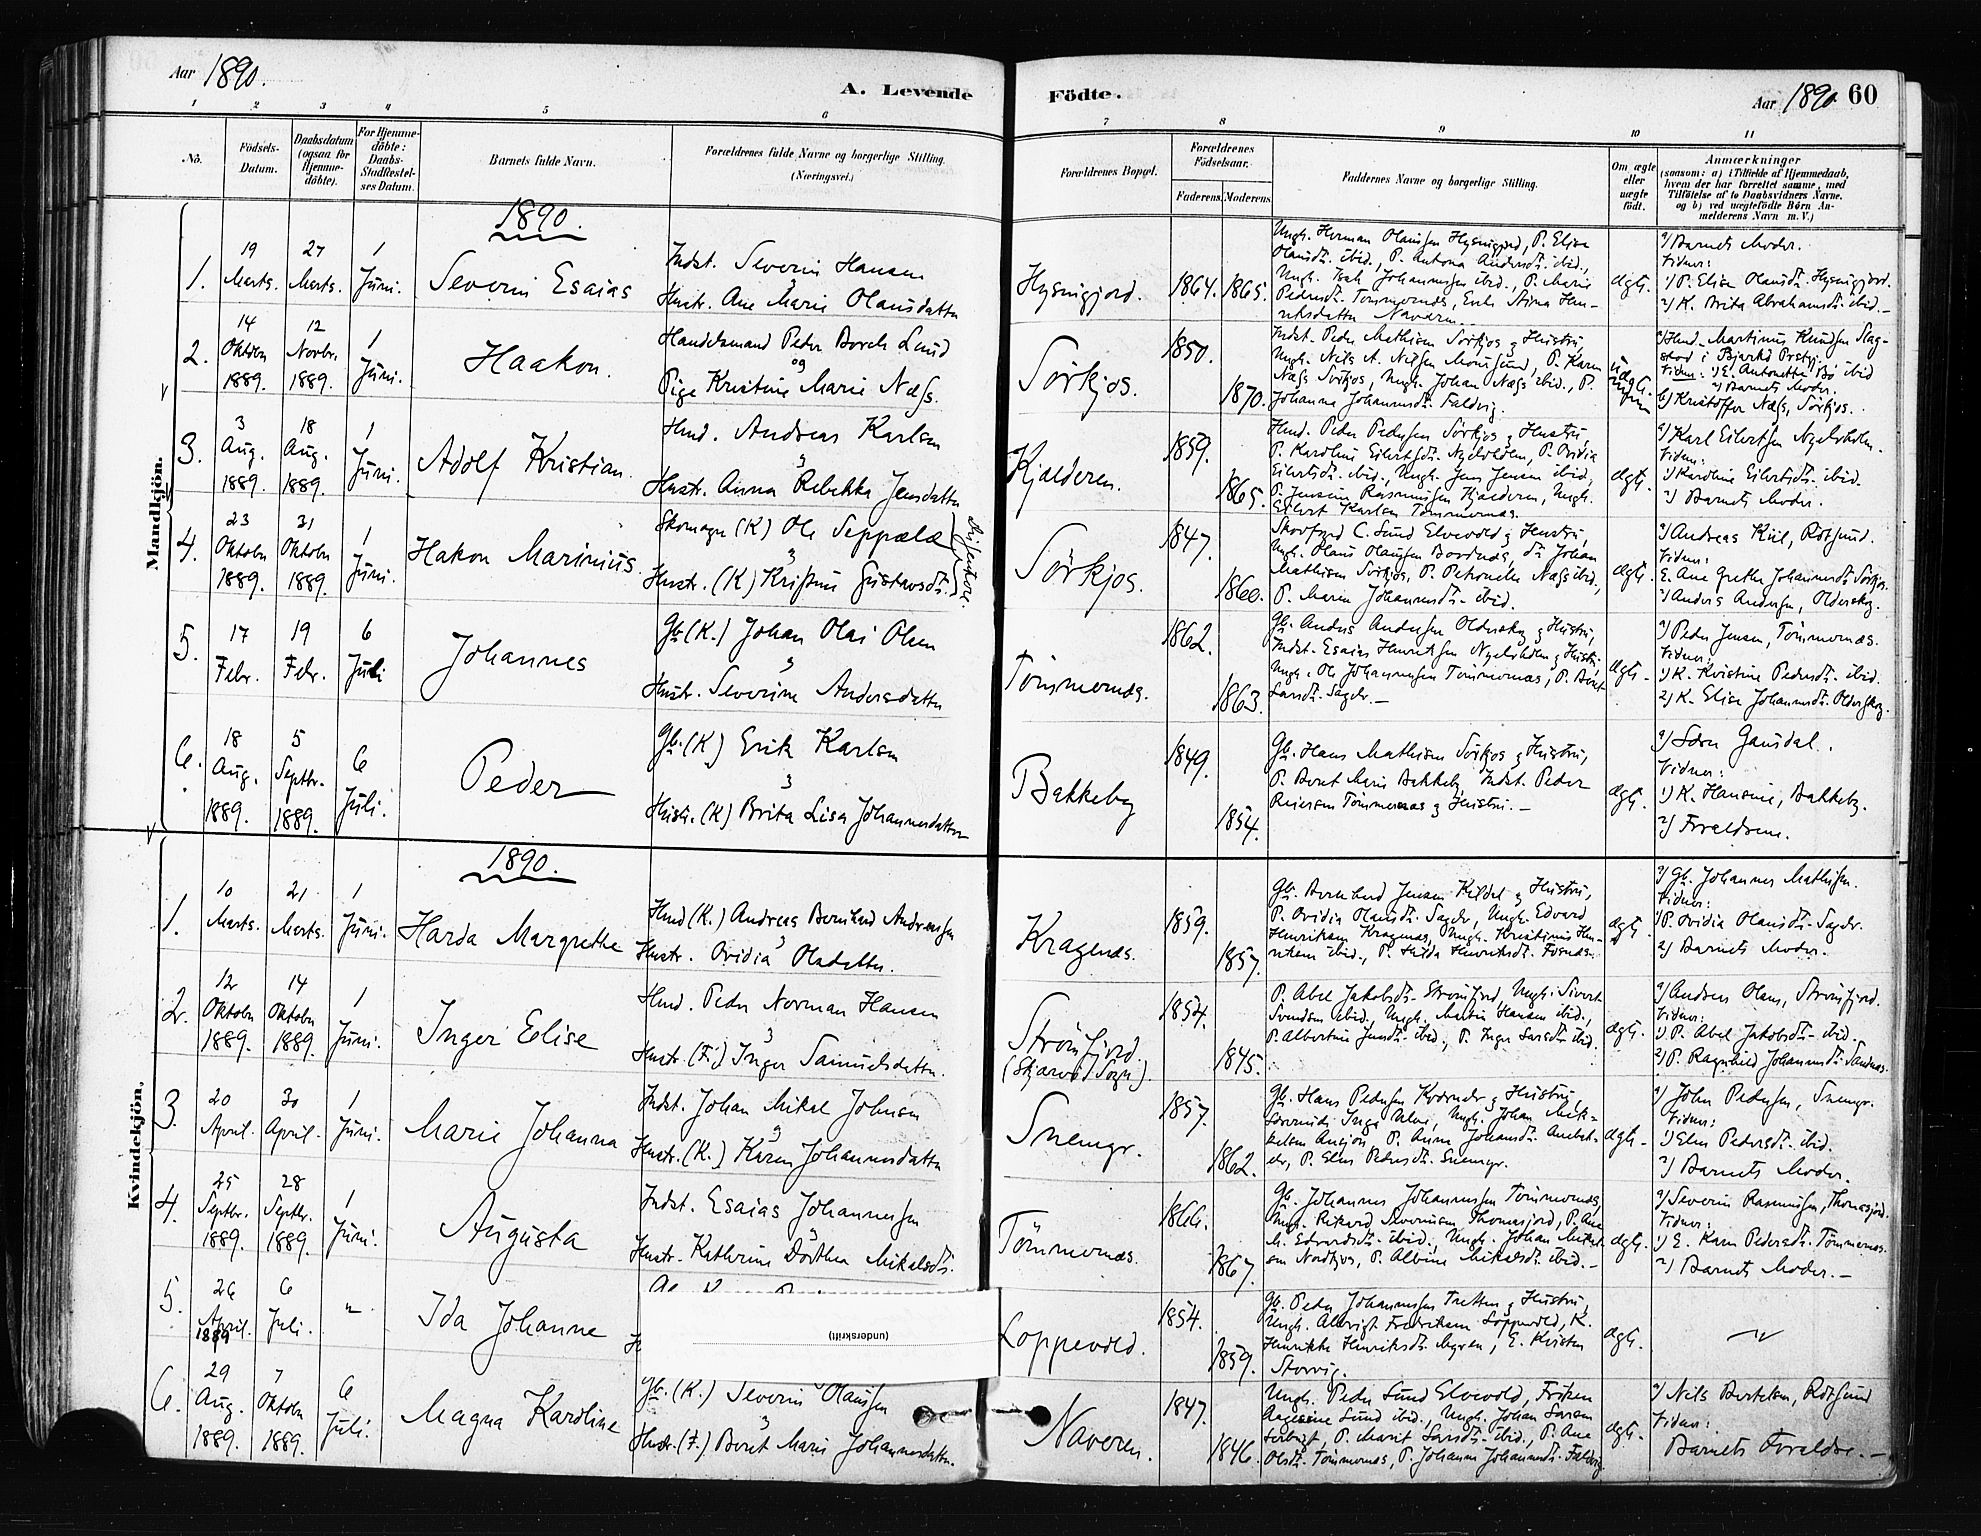 Aar 1890.
A. Levende
Födte.
Aar 1890. 60
1 2 3 4 5 6 7 8 9 10 11
No.
Födsels-
Datum.
Daabsdatum
(ogsaa for
Hjemme-
döbte).
For Hjemme-
döbte:
Daabs-
Stadfæstel-
ses Datum.
Barnets fulde Navn.
Forældrenes fulde Navne og borgerlige Stilling.
(Næringsvei.)
Forældrenes Bopæl.
Forældrenes
Födselsaar.
Faderens. Moderens.
Faddernes Navne og borgerlige Stilling.
Om ægte
eller
uægte
födt.
Anmærkninger
(saasom: a) i Tilfælde af Hjemmedaab,
hvem der har forrettet samme, med
Tilföielse af to Daabsvidners Navne,
og b) ved uægtefödte Börn An-
melderens Navn m. V.)
Mandkjön.
1890.
1.
19
Marts.
27
Marts.
1
Juni.
Severin Esaias
Indst. Severin Hansen
Hustr. Ane Marie Olausdatter
Hysingjord.
1864. 1865.
Ungk. Herman Olaussen Hysingjord, P. Elise
Olausdtr. ibid., P. Antona Andersdtr. ibid.,
Ungk. Isak Johannessen ibid., P. Marie
Pedersdtr. Tømmernæs, Enke Stina Hen-
riksdatter Naveren.
ægte.
a) Barnets Moder.
Vidner:
1) P. Elise Olausdtr. Hysingjord.
2) K. Brita Abrahamsdtr. ibid.
2.
14
Oktober
1889.
12
Novbr.
1889.
1
Juni.
Haakon.
Handelsmand Peder Borch Lund
og
Pige Kristine Marie Næss.
Sörkjos.
1850.
1870.
Indst. Peder Mathisen Sörkjos & Hustru,
Ungk. Nils A. Nilsen Maursund, P. Karen
Næss Sörkjos, Ungk. Johan Næss ibid., P.
Johanna Johannesdtr. Faldvig.
a) Hmd. Martinus Knudsen Slag-
stad i Bjarkö Prstgj.
Vidner: 1) E. Antonette Bö ibid
2) Barnets Moder.
b) Kristoffer Næss, Sörkjos.
3.
3
Aug.
1889.
18
Aug.
1889.
1
Juni.
Adolf Kristian.
Hmd. Andreas Karlsen
&
Hustr. Anna Rebekka Jensdatter
Kjælderen.
1859.
1865.
Hmd. Peder Pedersen Sörkjos & Hustru,
P. Karoline Eilertsdtr. Nyelvholm, P. Ovidia
Eilertsdtr. ibid, Ungk. Jens Jensen ibid,
P. Jensine Rasmussen Kjælderen, Ungk.
Eilert Karlsen Tømmernæs.
ægte.
a) Karl Eilertsen Nyelvholm.
Vidner:
1) Karoline Eilertsdtr. ibid.
2) Barnets Moder.
4.
23
Oktober
1889.
31
Oktober
1889.
1
Juni.
Hakon Marinius.
Skomager (K) Ole Seppælæ
&
Hustr. (K) Kristine Gustavsdtr.
Dissentere.
Sörkjos.
1847.
1860.
Skovfogd C. Lund Elvevold & Hustru,
Ungk. Olaus Olaussen Bordnæs, do Johan
Mathisen Sörkjos, P. Petronelle Næss ibid,
P. Marie Johannesdtr. ibid.
ægte.
a) Andreas Kiil, Rötsund.
Vidner:
E. Ane Grethe Johannesdtr. Sörkjos.
2) Anders Andersen, Olderskog.
5.
17
Febr.
19
Febr.
6
Juli
Johannes
Gb. (K.) Johan Olai Olsen
&
Hustr. Severine Andersdatter
Tömmernæs.
1862.
1863.
Gb. Anders Andersen Olderskog & Hustru,
Indst. Esaias Henriksen Nyelvholm & Hustru,
Ungk. Ole Johannessen Tømmernæs, P. Beret
Larsdtr. Sagelv.
ægte.
a) Peder Jensen, Tömmernæs.
Vidner:
1) K. Kristine Pedersdtr. ibid.
2) K. Elisa Johannesdtr. Olderskog.
6.
18
Aug.
1889.
5
Septbr.
1889.
6
Juli.
Peder
Gb. (K) Erik Karlsen
&
Hustr. (K) Brita Lisa Johannesdatter
Bakkeby
1849.
1854.
Gb. Hans Mathisen Sörkjos & Hustru,
P. Beret Marie Bakkeby, Indst. Peder
Reiersen Tømmernæs & Hustru.
ægte.
a) Sören Gausdal.
Vidner:
1) K. Hansine, Bakkeby.
2) Forældrene.
Kvindekjön.
1890.
1.
10
Marts.
21
Marts.
1
Juni.
Harda Margrethe
Hmd (K.) Andreas Bernhard Andreassen
&
Hustr. Ovidia Olsdatter.
Kragenæs.
1859.
1857.
Gb. Bernhard Jensen Kildal & Hustru,
P. Ovidia Olausdtr. Sagelv, Ungk. Edvard
Henriksen Kragenæs, Ungk. Kristinus Hen-
riksen ibid., P. Hilda Henriksdtr. Fosnæs.
ægte.
a) Gb. Johannes Mathisen.
Vidner:
1) P. Ovidia Olausdtr. Sagelv.
2) Barnets Moder.
2.
12
Oktober
1889.
14
Oktober
1889.
1
Juni.
Inger Elise
Hmd. Peder Norman Hansen
&
Hustr. (F.) Inger Samuelsdatter.
Strömfjord.
(Skjærvö Sogn).
1854.
1845.
P. Abel Jakobsdtr. Strömfjord, Ungk. Sivert
Svendsen ibid., Ungk. Martin Hansen ibid.,
P. Albertine Jensdtr. ibid., P. Inger Larsdtr. ibid.
ægte.
a) Anders Olsen, Strömfjord.
Vidner:
1) P. Abel Jakobsdtr. ibid.
2) P. Ragnhild Johannesdtr. Sandnæs.
3.
20
April.
30
April.
1
Juni.
Marie Johanna
Indst. Johan Mikal Johnsen
&
Hustr. (K.) Karen Johannesdatter
Snemyr.
1857.
1862.
Gb. Hans Pedersen Kvænelv & Hustru,
Ungk. Johan Mik-
kelsen
P. Elen Pedersdtr. Snemyr.
ægte.
a) John Pedersen, Snemyr.
Vidner:
1) Elen Pedersdtr. ibid.
2) Barnets Moder.
4.
25
Septbr.
1889.
28
Septbr.
1889.
1
Juni.
Augusta
Indst. Esaias Johannessen
Hustr. Kathrine Dorthea Mikalsdtr.
Tömmernæs.
1866.
1867.
Gb. Johannes Johannessen Tømmernæs,
Ungk. Rikard Severinsen Thomasjord, P. Ane
M. Edvardsdtr. ibid., Ungk. Johan Mikal-
sen Nordkjos, P. Albine Mikalsdtr. ibid.
ægte.
a) Severin Rasmussen, Thomasjord.
Vidner:
1) E. Karen Pedersdtr. Tömmernæs.
2) Barnets Moder.
5.
26
April.
1889
6
Juli.
"
Ida Johanne
(underskrift)
Loppevold.
1854.
1859.
Gb. Peder Johannessen Tretten & Hustru,
Ungk. Albrigt Fredriksen Loppevold, K.
Henrikke Henriksdtr. Myren, E. Kirsten
Storvig.
ægte.
"
6.
29
Aug.
1889.
7
Oktober
1889.
6
Juli.
Magna Karoline
Gb. (K.) Severin Olaussen
&
Hustr. (F.) Beret Marie Johannesdatter.
Naveren.
1847.
1846.
Ungk. Peder Lund Elvevold, Fröken
Aagesine Lund ibid., Ungk. Johan Larsen
Sørbugt, P. Marit Larsdtr. ibid., P. Ane
Olsdtr. Tømmernæs, P. Johanna Johannesdtr. Faldvig.
ægte.
a) Nils Bertelsen, Rötsund
Vidner:
Barnets Forældre.